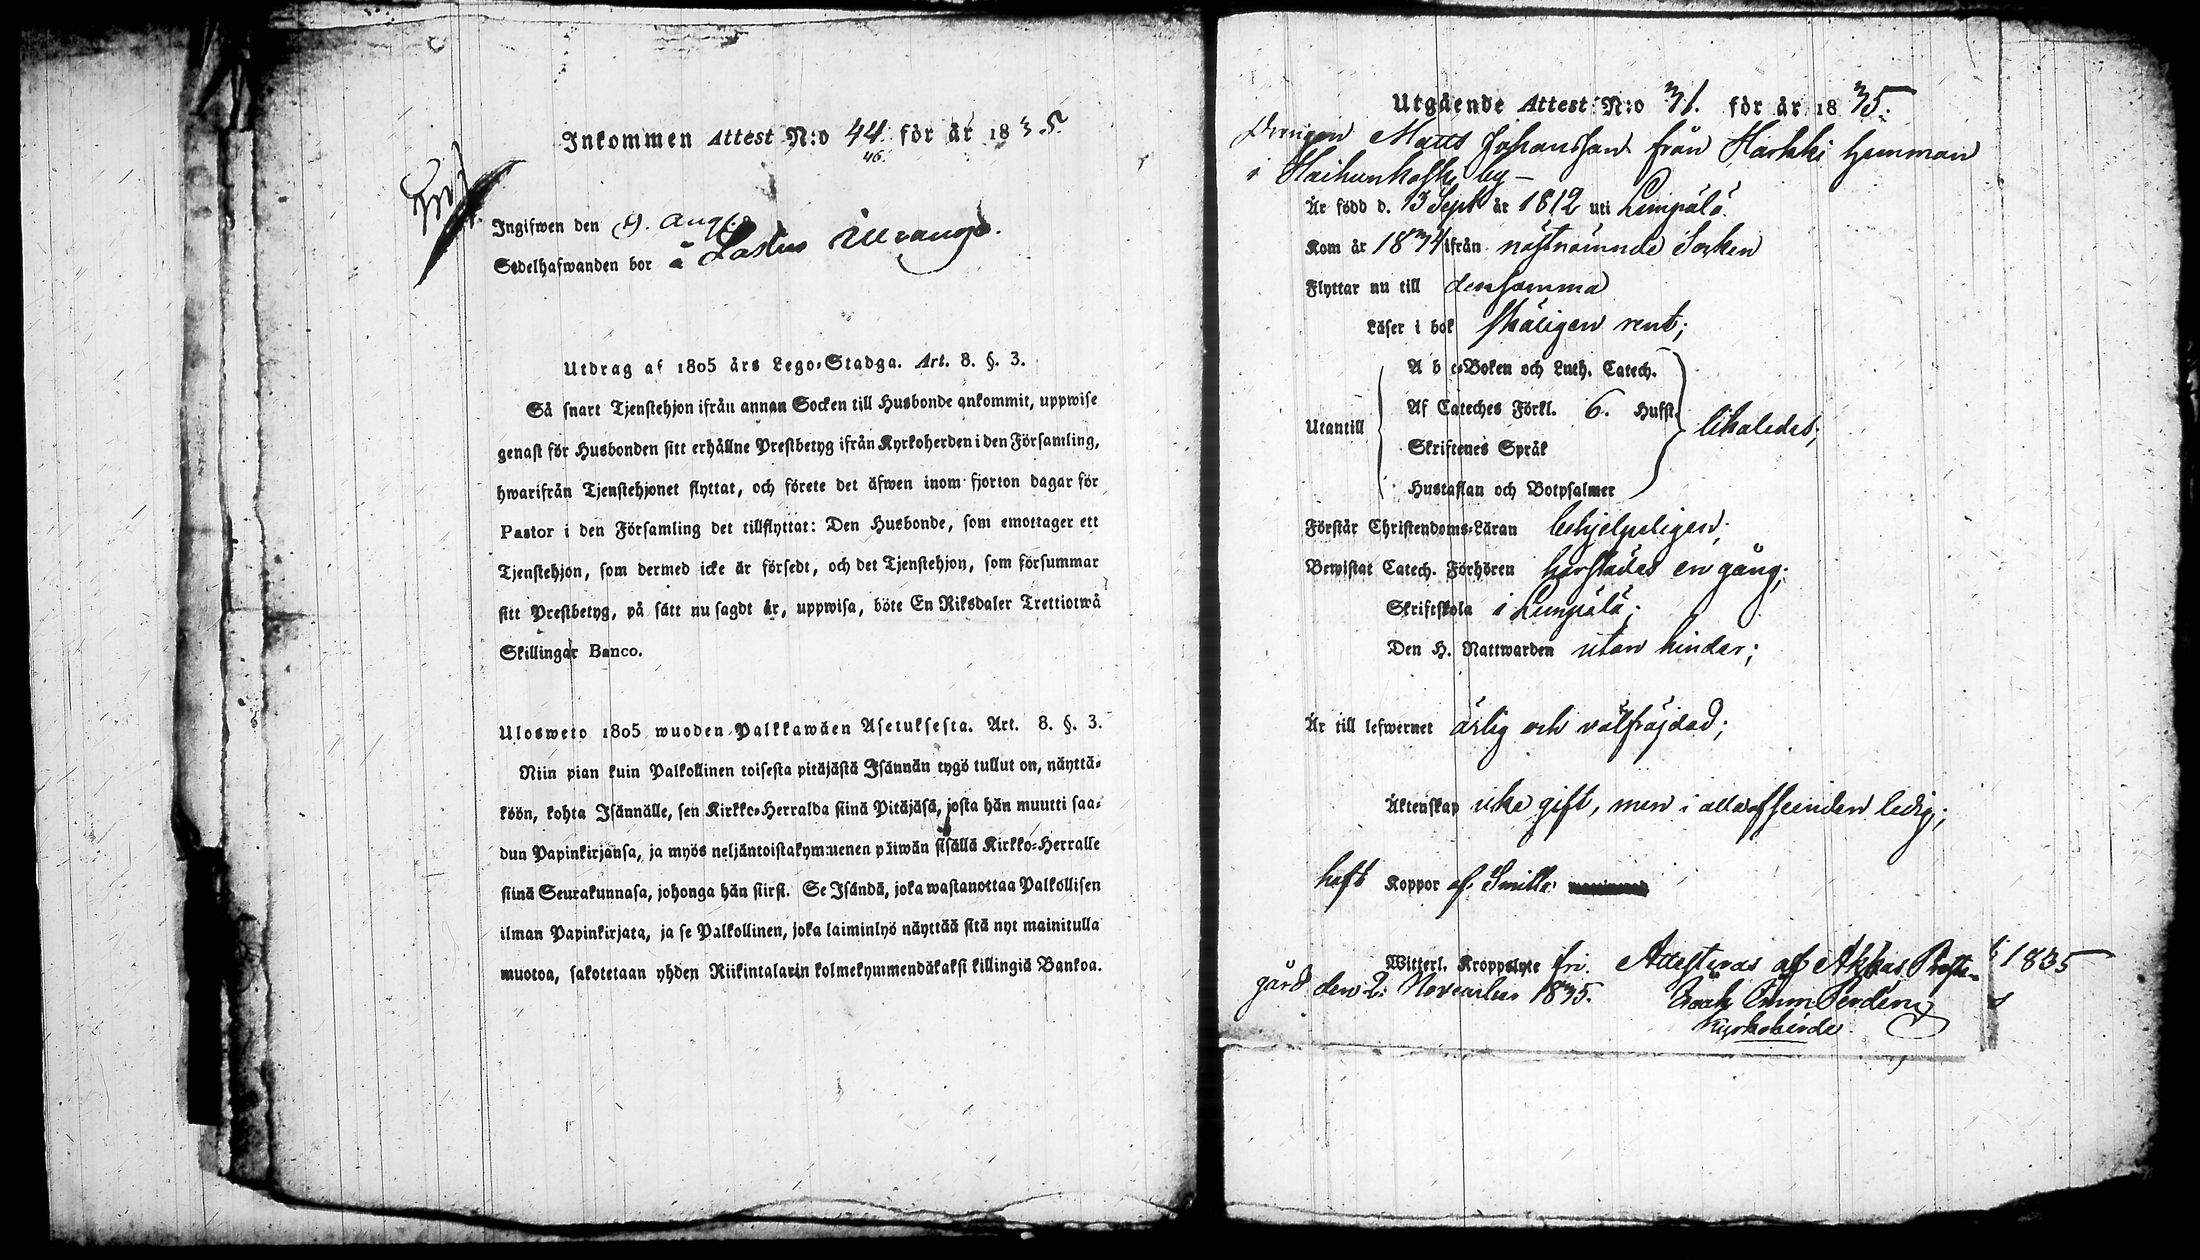 Inkommen Attest N:o 44. för år 1835.
46.
Ingifwen den 9. Aug
Sedelhafwanden bor å
Utdrag af 1805 års Lego-Stadga. Art. 8. §. 3.
Så snart Tjenstehjon ifrån annan Socken till Husbonde ankommit, uppwise
genast för Husbonden sitt erhållne Prestbetyg ifrån Kyrkoherden i den Församling,
hwarifrån Tjenstehjonet flyttat, och förete det äfwen inom fjorton dagar för
Pastor i den Församling det tillflyttat: Den Husbonde, som emottager ett
Tjenstehjon, som dermed icke är försedt, och det Tjenstehjon, som försummar
sitt Prestbetyg, på sätt nu sagdt är, uppwisa, böte En Riksdaler Trettiotwå
Skillingar Banco.
Ulosweto 1805 wuoden Palkkawäen Asetuksesta. Art. 8. §. 3.
Niin pian kuin Palkollinen toisesta pitäjästä Isännän tygö tullut on, näyttä-
köön, kohta Isännälle, sen Kirkko-Herralda siinä Pitäjäsä, josta hän muutti saa-
dun Papinkirjansa, ja myös neljäntoistakymmenen päiwän sisällä Kirkko-Herralle
siinä Seurakunnasa, johonga hän siirsi. Se Isändä, joka wastanottaa Palkollisen
ilman Papinkirjata, ja se Palkollinen, joka laiminlyö näyttää sitä nyt mainitulla
muotoa, sakotetaan yhden Riikintalarin kolmekymmendäkaksi killingiä Bankoa.
Utgående Attest N:o 31. för år 1835.
Drengen Matts Johansson från Harkki hemman
i Haihunkoski by —
Är född d. 13 Sept år 1812 uti Lempälä
Kom år 1834 ifrån nästnämnde Socken
Flyttar nu till densamma
Läser i bok skäligen rent;
Utantill
A b c-Boken och Luth. Catech.
Af Cateches Förkl. 6. Hufst.
Skriftenes Språk
Hustaflan och Botpsalmer
likaledes;
Förstår Christendoms-Läran behjelpeligen;
Bewistat Catech. Förhören härstädes en gång;
Skriftskola i Lempälä;
Den H. Nattwarden utan hinder;
Är till lefwernet ärlig och välfräjdad;
Äktenskap icke gift, men i alla afseenden ledig;
haft Koppor af Smitta
Witterl. Kroppslyte fri. Attesteras af Akkas Preste-
gård den 2. November 1835.
Kyrkoherde
1835